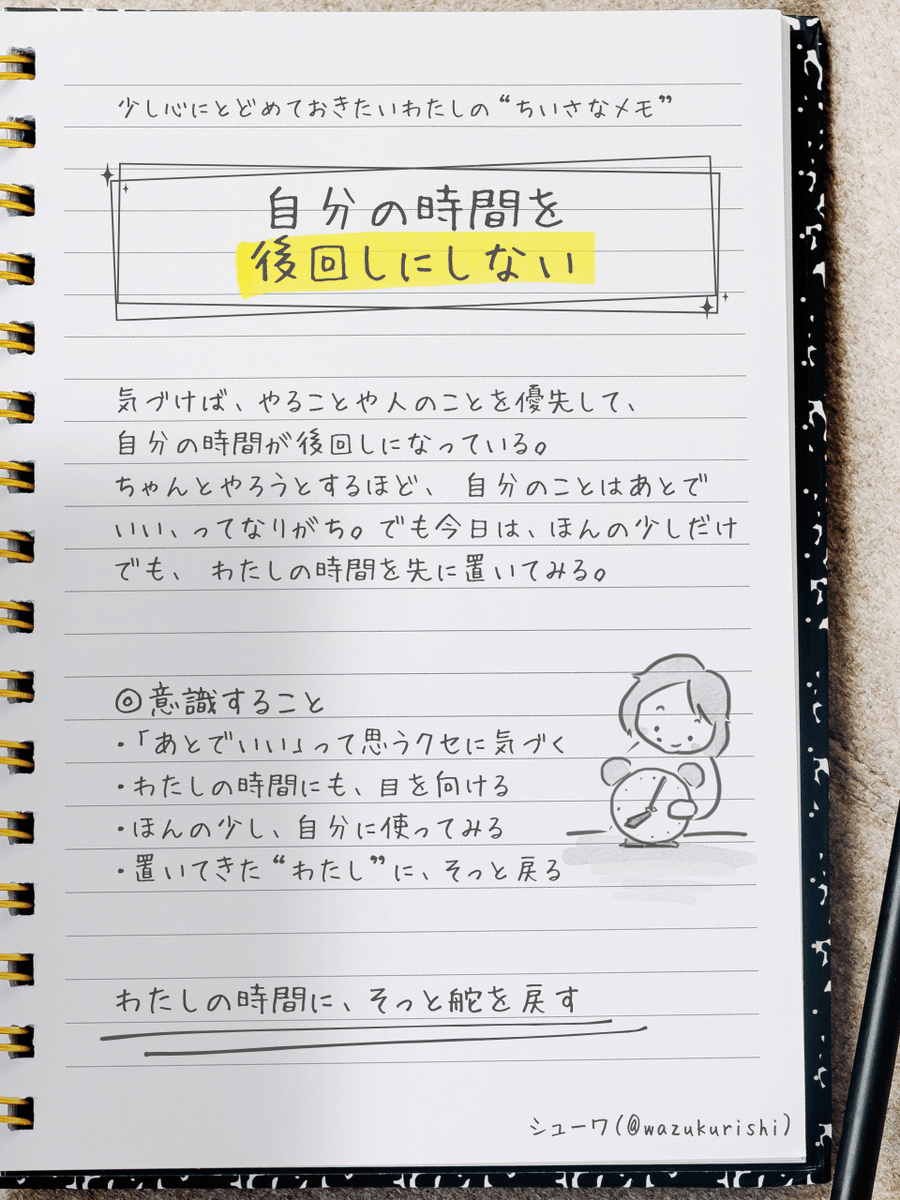 少し心にとどめておきたいわたしの“ちいさなメモ”
自分の時間を
後回しにしない
気づけば、やることや人のことを優先して、
自分の時間が後回しになっている。
ちゃんとやろうとするほど、 自分のことはあとで
いい、ってなりがち。でも今日は、ほんの少しだけ
でも、 わたしの時間を先に置いてみる。
◎意識すること
・「あとでいい」って思うクセに気づく
・わたしの時間にも、目を向ける
・ほんの少し、自分に使ってみる
・置いてきた“わたし”に、そっと戻る
わたしの時間に、そっと舵を戻す
シューワ(@wazukurishi)